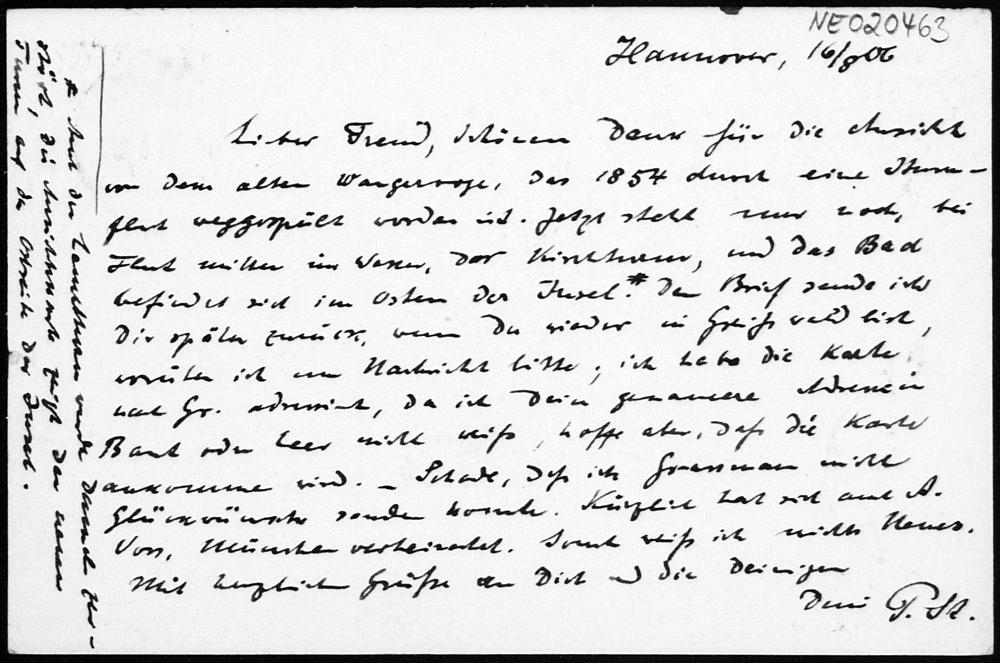 NE020463
Hannover, 16/8 06
Lieber Freund, schönen Dank für die Ansicht
von dem alten Wangerooge, das 1854 durch eine Sturm-
flut weggespült worden ist. Jetzt steht nur noch, bei
Flut mitten im Wasser, der Kirchturm, und das Bad
befindet sich im Osten der Insel.* Den Brief sende ich
Dir später zurück, wenn Du wieder in Greifswald bist,
worüber ich um Nachricht bitte; ich habe die Karte
nach Gr. adressirt, da ich Deine genauere Adresse in
Bant oder Leer nicht weiß, hoffe aber, daß die Karte
ankommen wird. – Schade, daß ich Grassmann nicht
Glückwünsche senden konnte. Kürzlich hat sich auch A.
Voss, München verheiratet. Sonst weiß ich nichts Neues.
Mit herzlichen Grüßen an Dich und die Deinigen
Dein P. St.
* Auch der Leuchtturm wurde damals zer-
stört, die Ansichtskarte zeigt den neuen
Turm auf der Ostseite der Insel.